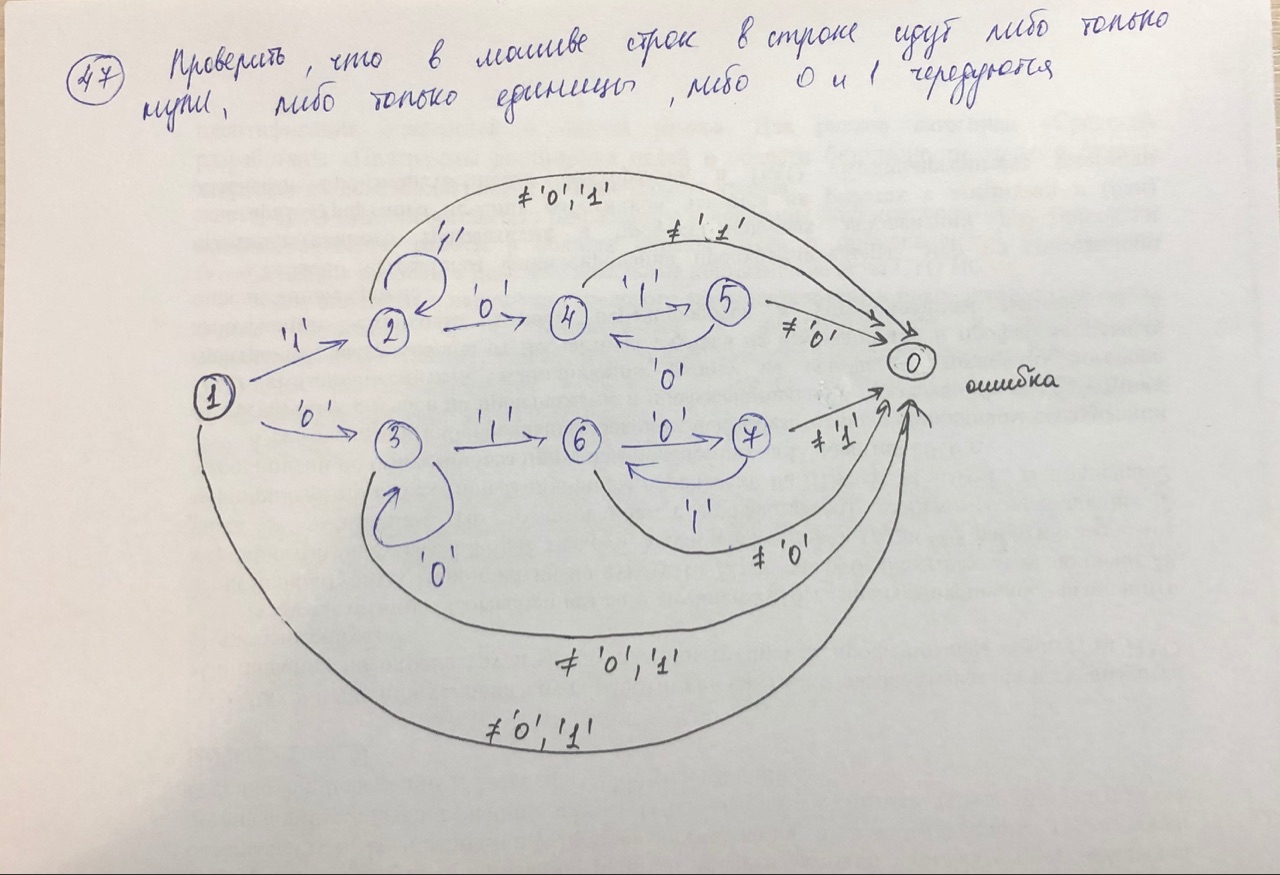 47 Проверить, что в массиве строк в строке идут либо только
нули, либо только единицы, либо 0 и 1 чередуются
≠ '0', '1'
≠ '1'
'1'
'0'
'1'
5
2
4
≠ '0'
'1'
'0'
0
1
ошибка
'0'
3
'1'
6
'0'
7
≠ '1'
'1'
'0'
≠ '0'
≠ '0', '1'
≠ '0', '1'